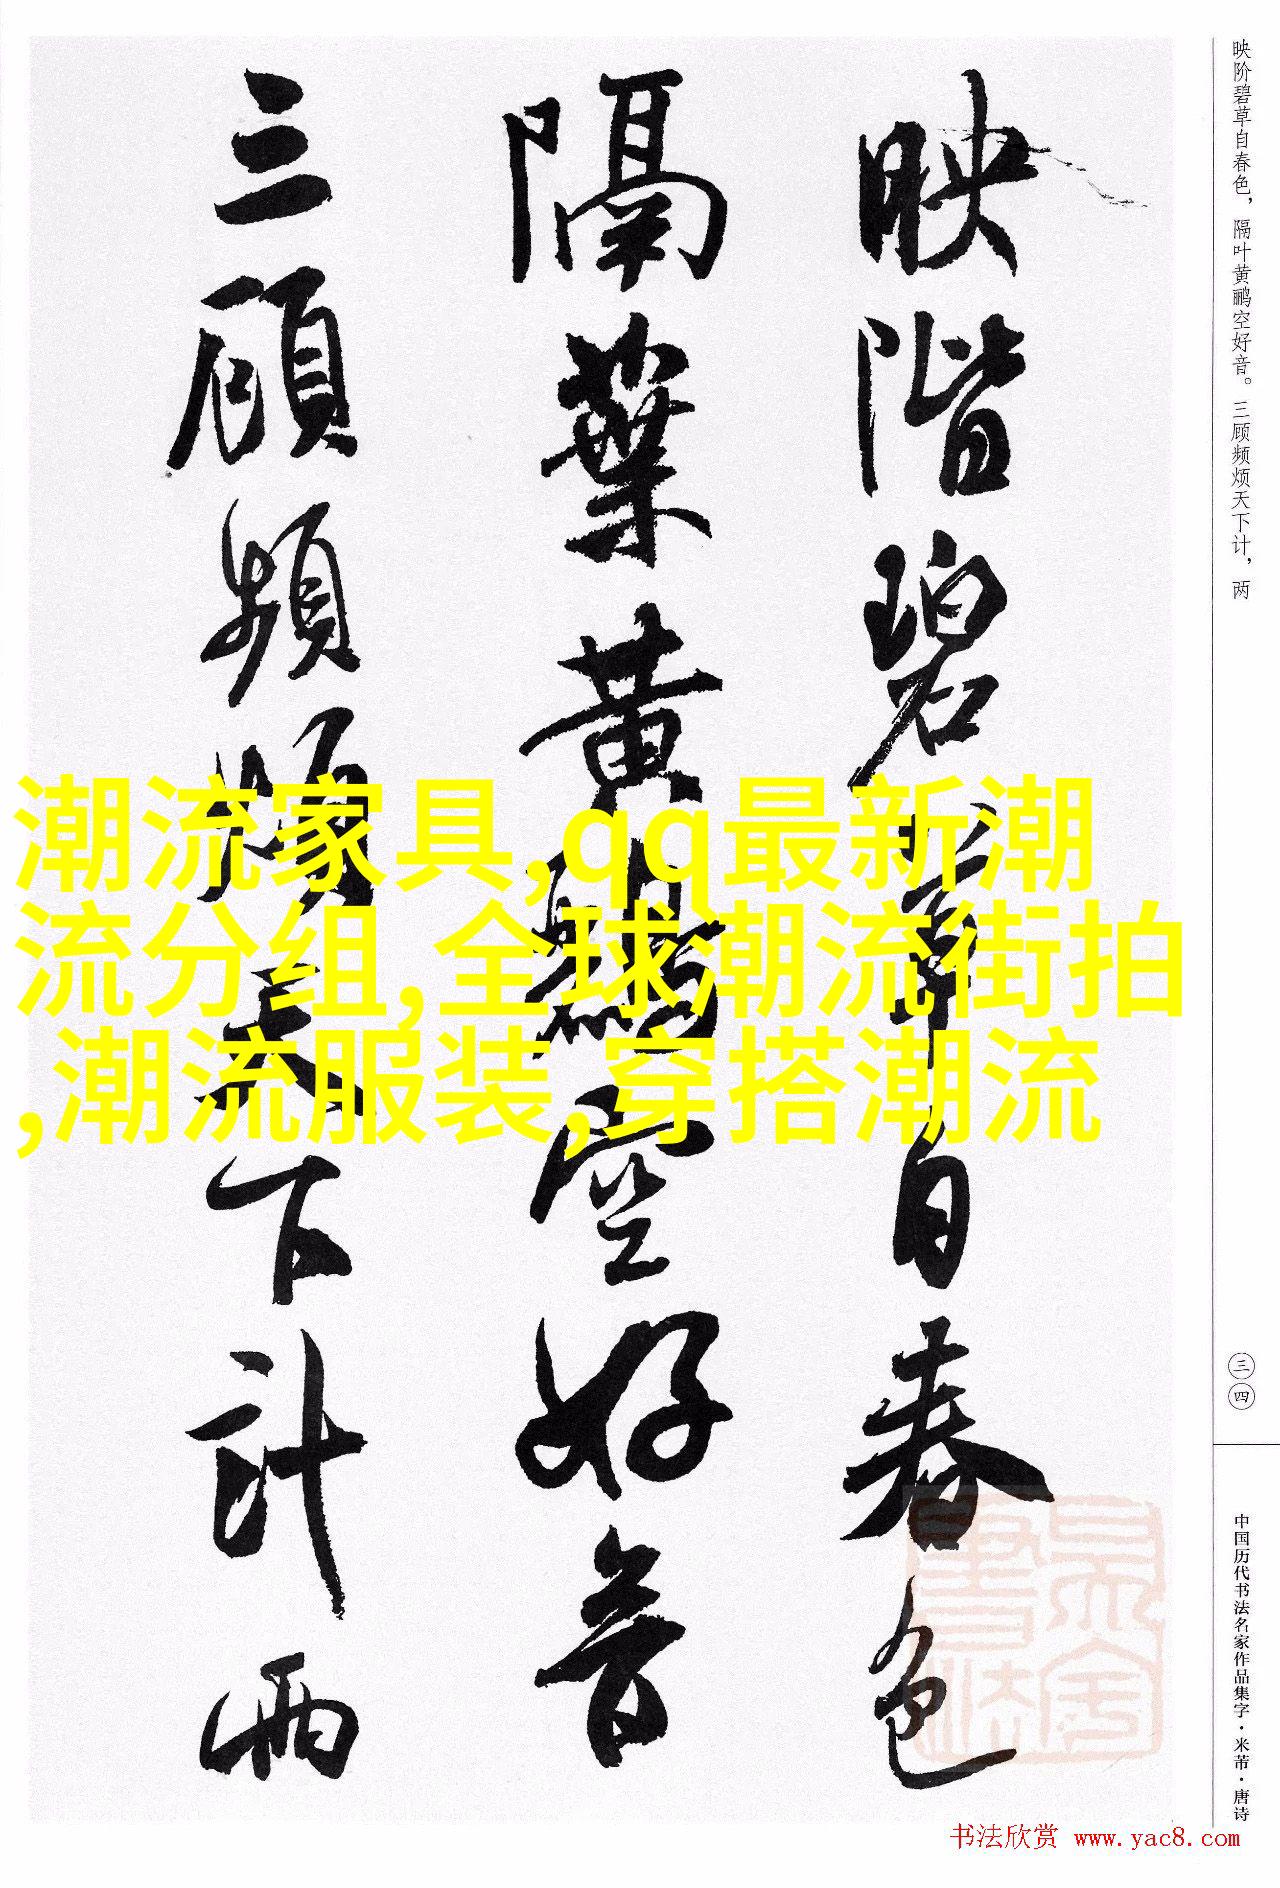 映階碧草自春色
隔葉黃鸝空好音
三顧頻煩天下計兩
映阶碧草自春色，隔叶黄鹂空好音。三顾频烦天下计，两
三四
中国历代书法名家作品集字·米芾·唐诗
潮流家具,qq最新潮
流分组,全球潮流街拍
,潮流服装,穿搭潮流
书法欣赏 www.yac8.com